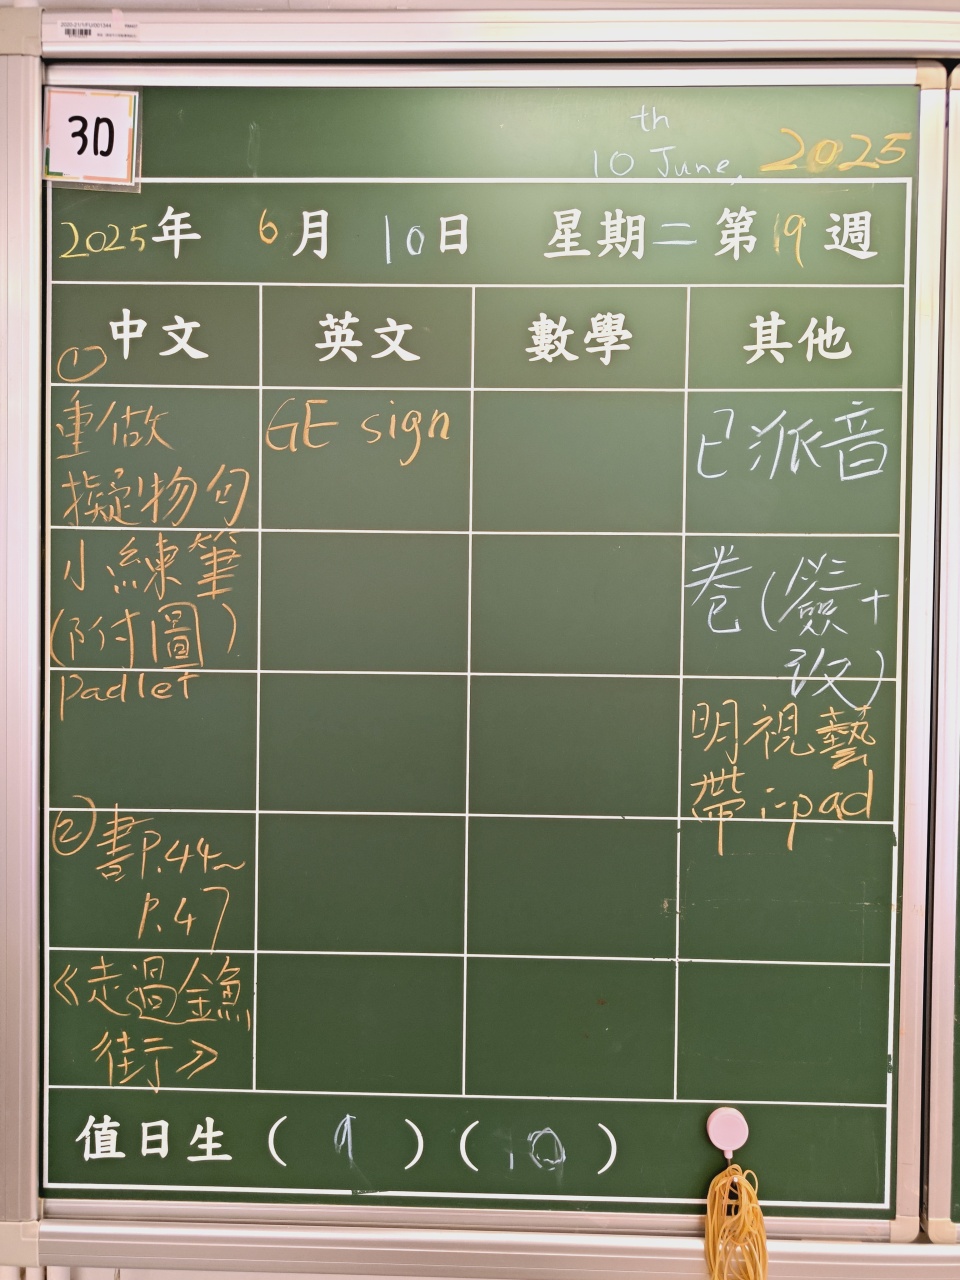 2020-21/1/FU/001344
3D
th
10 June, 2025
2025年 6月 10日 星期二 第19週
中文 英文 數學 其他
①
重做
擬物句
小練筆
(附圖)
padlet
②書P.44~
P.47
《走過金魚
街》
GE sign
已派音
卷(簽+
改)
明視藝
帶i-pad
值日生 ( 9 ) ( 10 )